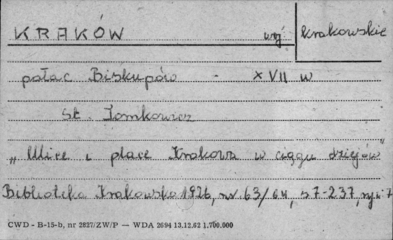 KRAKÓW woj. krakowskie
pałac Biskupów - XVII w
St. Tomkowicz
„Ulice i place Krakowa w ciągu dziejów"
Biblioteka Krakowska 1926, nr. 63/64, s 7-237, ryc. 7
CWD - B-15-b, nr 2827/ZW/P — WDA 2694 13.12.62 1.700.000